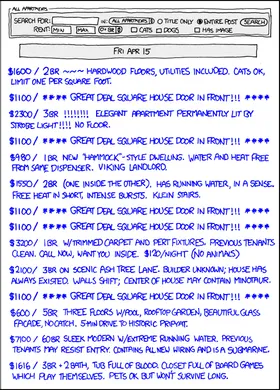 ALL APARTMENTS
SEARCH FOR: IN: ALL APARTMENTS TITLE ONLY ENTIRE POST SEARCH
RENT: MIN MAX 0+ BR CATS DOGS HAS IMAGE
FRI APR 15
$1600 / 2BR ~~~ HARDWOOD FLOORS, UTILITIES INCLUDED. CATS OK,
LIMIT ONE PER SQUARE FOOT.
$1100 / **** GREAT DEAL SQUARE HOUSE DOOR IN FRONT!!! ****
$2300 / 3BR !!!!!!!! ELEGANT APARTMENT PERMANENTLY LIT BY
STROBE LIGHT!!!! NO FLOOR.
$1100 / **** GREAT DEAL SQUARE HOUSE DOOR IN FRONT!!! ****
$980 / 1BR NEW "HAMMOCK"-STYLE DWELLING. WATER AND HEAT FREE
FROM SAME DISPENSER. VIKING LANDLORD.
$1550 / 2BR (ONE INSIDE THE OTHER). HAS RUNNING WATER, IN A SENSE.
FREE HEAT IN SHORT, INTENSE BURSTS. KLEIN STAIRS.
$1100 / **** GREAT DEAL SQUARE HOUSE DOOR IN FRONT!!! ****
$1100 / **** GREAT DEAL SQUARE HOUSE DOOR IN FRONT!!! ****
$3200 / 1BR W/TRIMMED CARPET AND PERT FIXTURES. PREVIOUS TENANTS
CLEAN. CALL NOW, WANT YOU INSIDE. $120/NIGHT (NO ANIMALS)
$2100 / 3BR ON SCENIC ASH TREE LANE. BUILDER UNKNOWN; HOUSE HAS
ALWAYS EXISTED. WALLS SHIFT; CENTER OF HOUSE MAY CONTAIN MINOTAUR.
$1100 / **** GREAT DEAL SQUARE HOUSE DOOR IN FRONT!!! ****
$600 / 5BR THREE FLOORS W/POOL, ROOFTOP GARDEN, BEAUTIFUL GLASS
FACADE, NO CATCH. 5 MIN DRIVE TO HISTORIC PRIPYAT.
$7100 / 60BR SLEEK MODERN W/EXTREME RUNNING WATER. PREVIOUS
TENANTS MAY RESIST ENTRY. CONTAINS ALL NEW WIRING AND IS A SUBMARINE.
$1616 / 3BR + 2BATH, TUB FULL OF BLOOD. CLOSET FULL OF BOARD GAMES
WHICH PLAY THEMSELVES. PETS OK BUT WON'T SURVIVE LONG.